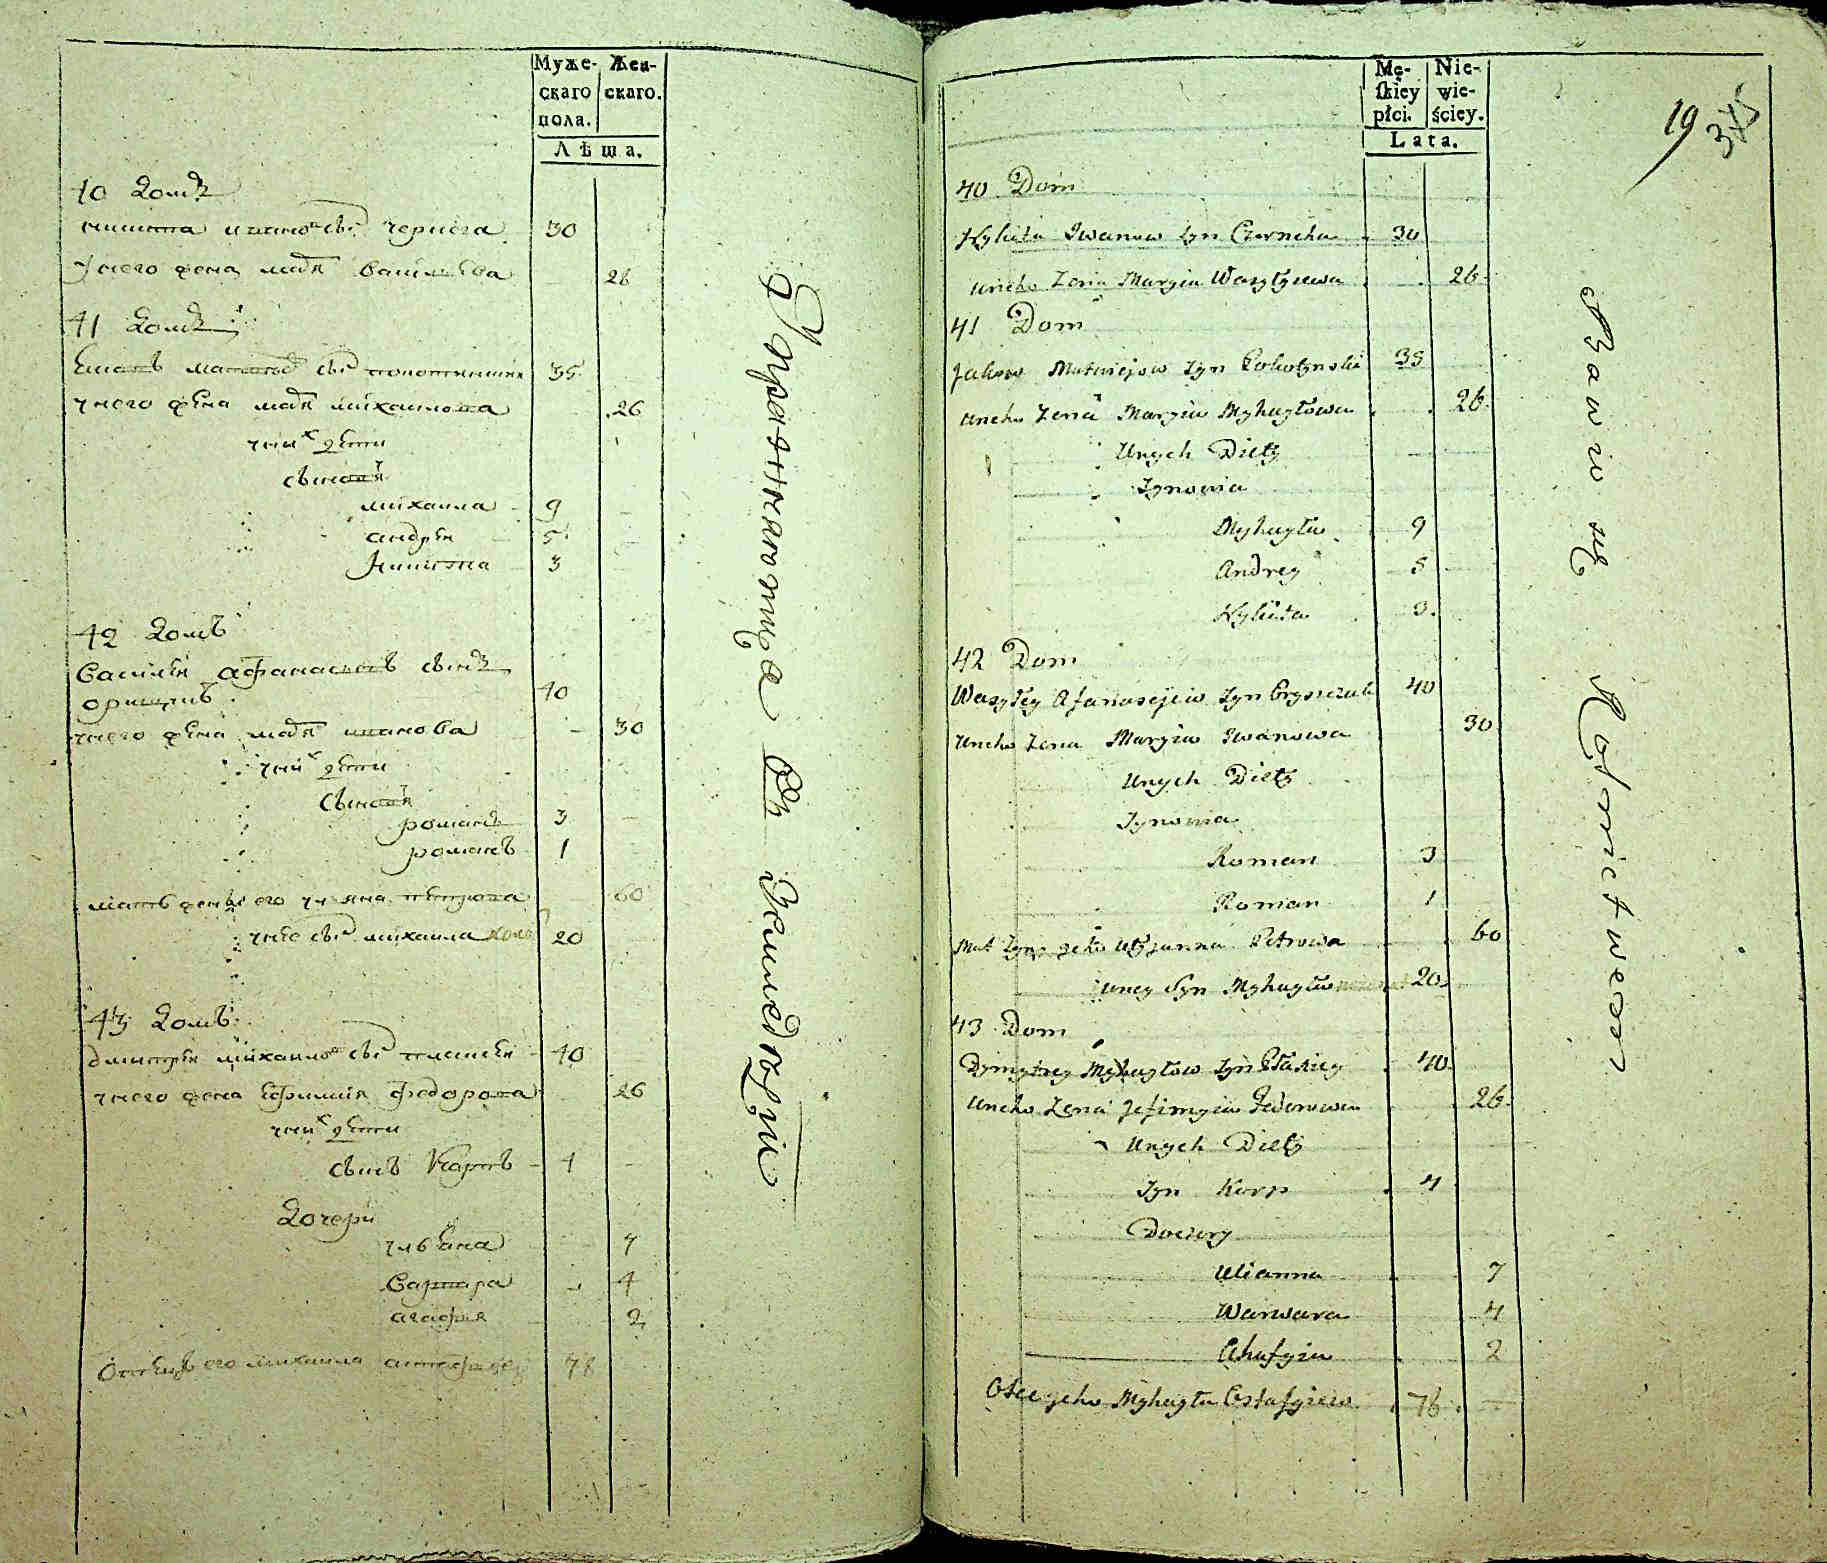 Муже-
скаго
пола.
Жен-
скаго.
Лѣта.
40 Домъ
никита ивановъ сынъ чернега 30
у него жена марья васильева 26
41 Домъ
матвеевъ сынъ 35
у него жена марья михаилова 26
у них дети
сыновья
михаила 9
андрей 5
Никита 3
42 Домъ
Василей афанасьевъ сынъ
орищукъ 40
у него жена марья иванова 30
у них дети
сыновья
романъ 3
романъ 1
мать жены его ульяна петрова 60
у нее сынъ михаила 20
43 Домъ
дмитрей михаиловъ сынъ 40
у него жена ефимия федорова 26
у них дети
сынъ Карпъ 4
Дочери
ульяна 7
варвара 4
агафия 2
Отецъ его михаила 78
Упражняютца въ Земледѣлии
Mę-
skiey
płci.
Nie-
wie-
ściey.
Lata.
19
345
40 Dom
Nykita Iwanow Syn Czerneha 30
uneho Zena Maryia Wasylyiewa 26
41 Dom
Jakow Matwiejow Syn 35
uneho Zena Maryia Myhayłowa 26
Unych Diety
Synowia
Myhayła 9
Andrey 5
Nykita 3
42 Dom
Wasyley Afanasijew Syn Oryszczuk 40
uneho Zena Maryia Iwanowa 30
Unych Diety
Synowia
Roman 3
Roman 1
Mat Zeny jeho Ulyianna Petrowa 60
uney Syn Myhayła 20
43 Dom
Dymytrey Myhayłow Syn 40
uneho Zena Jefimyia Fedorowa 26
Unych Diety
Syn Karp 4
Doczery
Ulianna 7
Warwara 4
Ahafyia 2
Otec jeho Myhayła Ostafyiew 78
Bawio się Rolnictwem